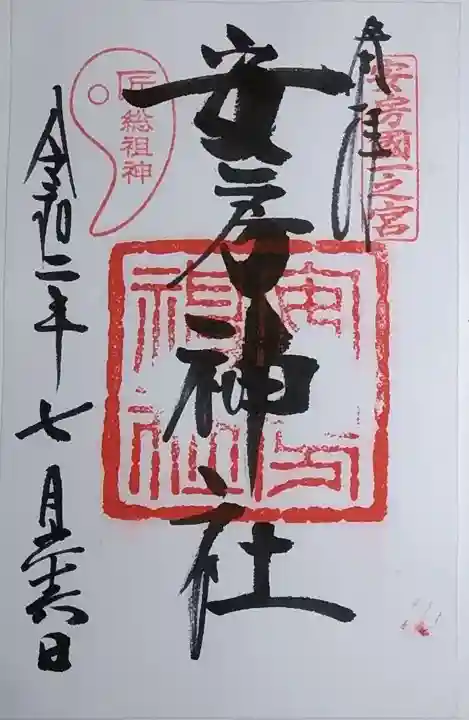 奉拝
安房國一之宮
安房神社
安房
神社
匠総祖神
令和二年七月二十六日